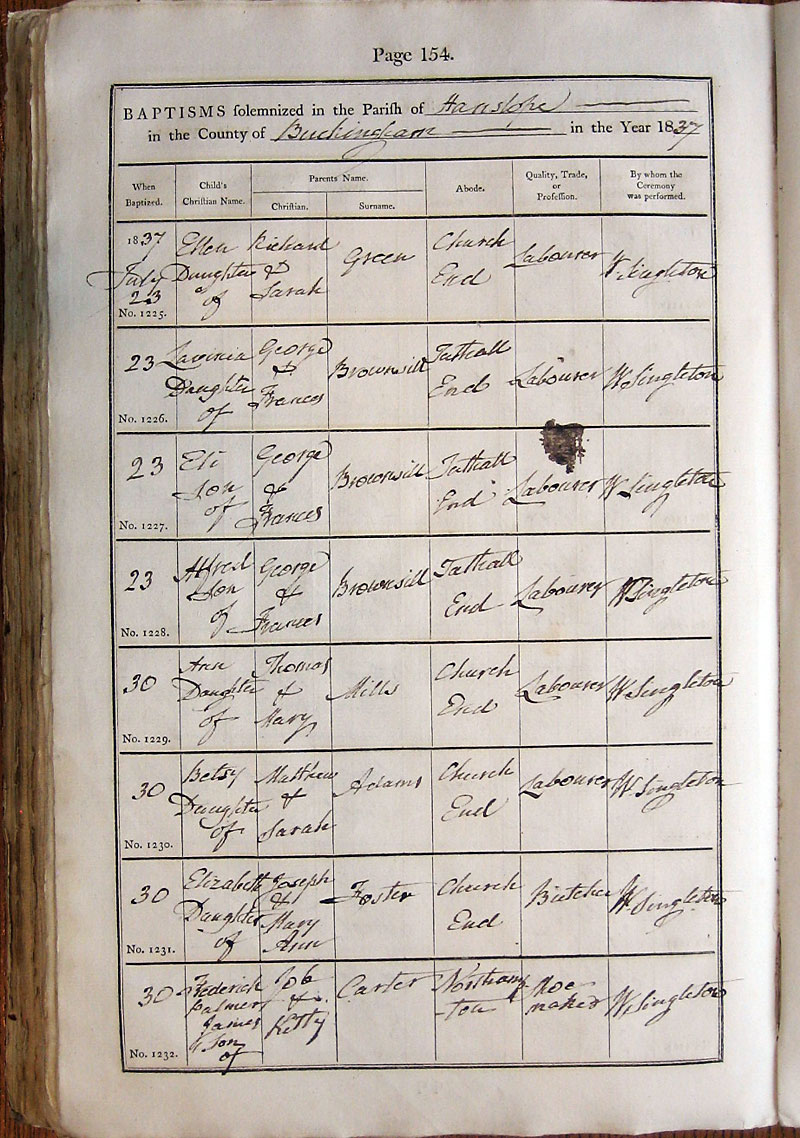 Page 154.
BAPTISMS solemnized in the Parish of Hanslope
in the County of Buckingham in the Year 1837
When Baptized. Child's Christian Name. Parents Name. Christian. Surname. Abode. Quality, Trade, or Profession. By whom the Ceremony was performed.
1837 Ellen Richard Green Church Labourer W Singleton
July Daughter & End
23 of Sarah
No. 1225.
23 Lavinia George Brownsill Tathall Labourer W Singleton
Daughter & End
of Frances
No. 1226.
23 Eli George Brownsill Tathall Labourer W Singleton
Son & End
of Frances
No. 1227.
23 Alfred George Brownsill Tathall Labourer W Singleton
Son & End
of Frances
No. 1228.
30 Ann Thomas Mills Church Labourer W Singleton
Daughter & End
of Mary
No. 1229.
30 Betsy Matthew Adams Church Labourer W Singleton
Daughter & End
of Sarah
No. 1230.
30 Elizabeth Joseph Foster Church Butcher W Singleton
Daughter & End
of Mary
Ann
No. 1231.
30 Frederick Job Carter Northamp Shoe W Singleton
Palmer & -ton maker
James Kitty
Son
of
No. 1232.